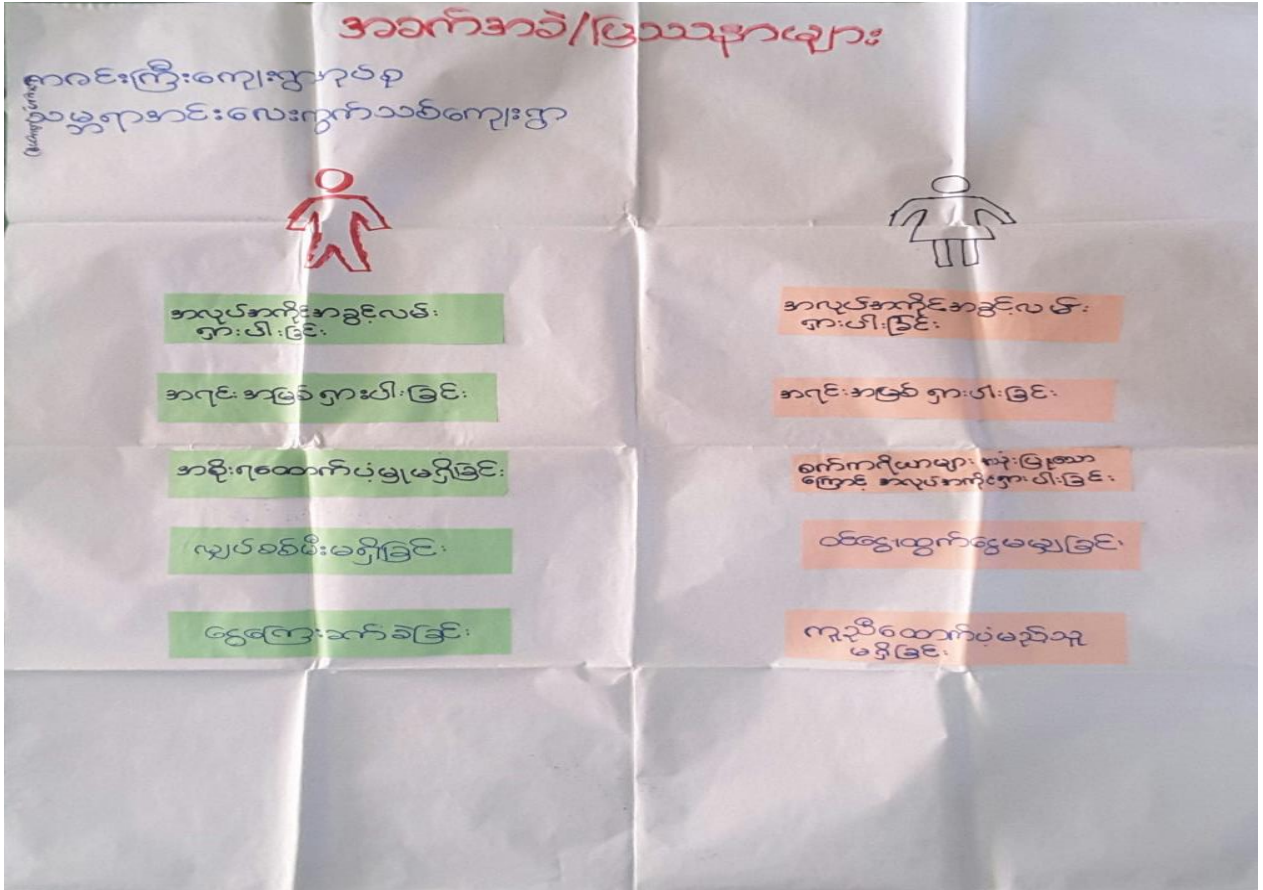 အခက်အခဲ/ပြဿနာများ
ကဝင်းကြီးကျေးရွာအုပ်စု
သမ္ဘရာအင်းလေးကွက်သစ်ကျေးရွာ
အလုပ်အကိုင်အခွင့်လမ်း
ရှားပါးခြင်း
အရင်းအမြစ် ရှားပါးခြင်း
အစိုးရထောက်ပံ့မှုမရှိခြင်း
လျှပ်စစ်မီးမရှိခြင်း
ငွေကြေးခက်ခဲခြင်း
အလုပ်အကိုင်အခွင့်လမ်း
ရှားပါးခြင်း
အရင်းအမြစ် ရှားပါးခြင်း
စက်ကရိယာများ သုံးပြုသော
ကြောင့် အလုပ်အကိုင်ရှားပါးခြင်း
ဝင်ငွေထွက်ငွေမမျှခြင်း
ကူညီထောက်ပံ့မည့်သူ
မရှိခြင်း